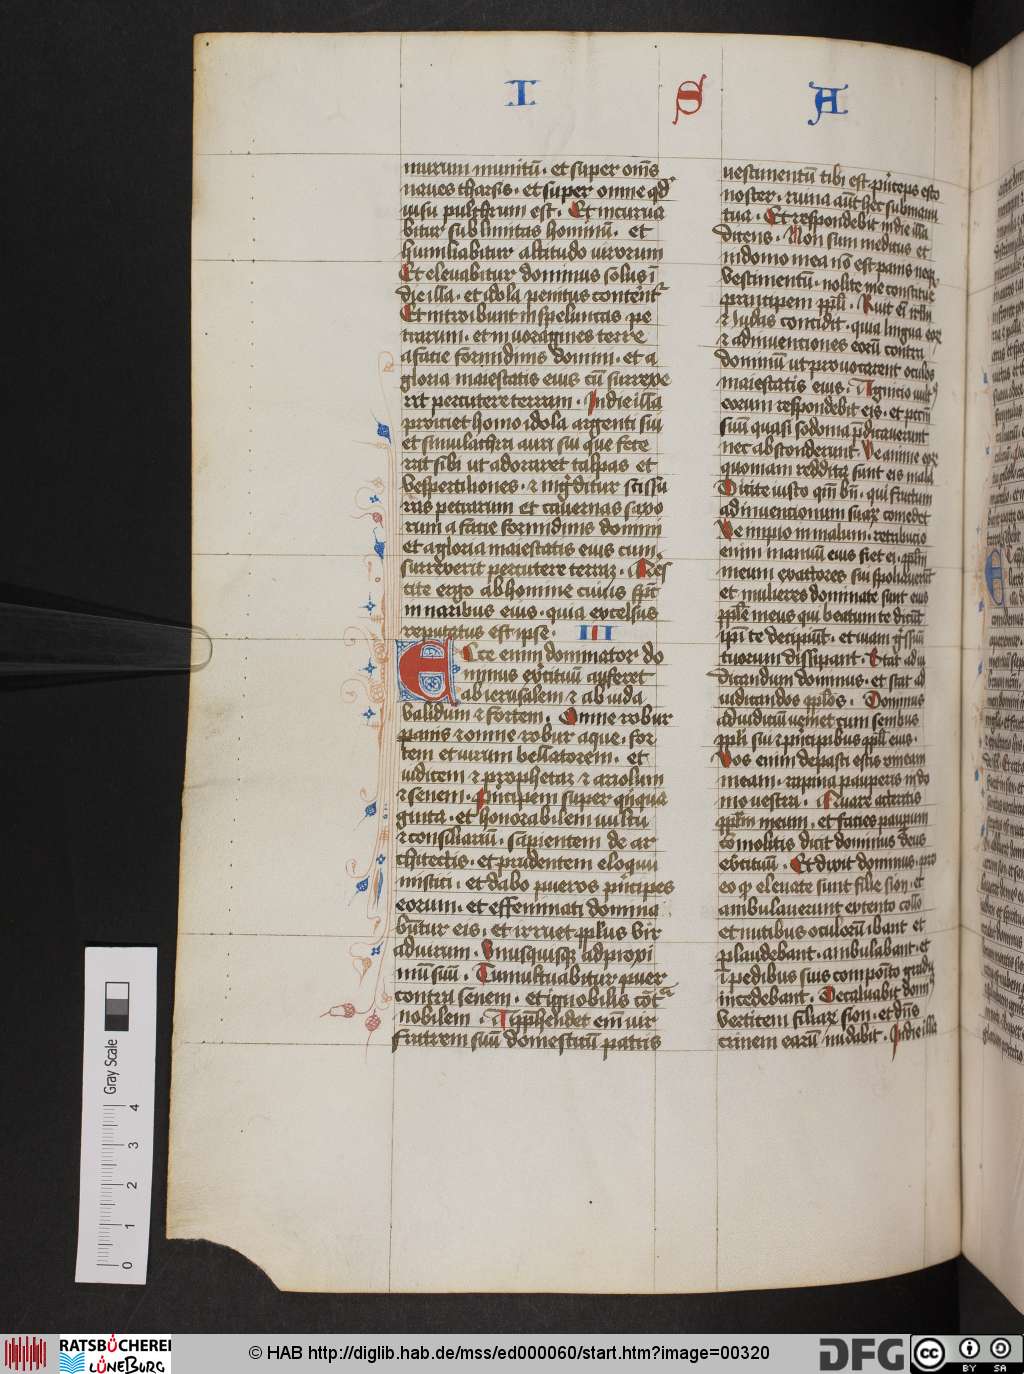 I S A
murum munitū . et super om̄s
naues tharsis . et super omne qd̾
uisu pulchrum est . Et incurua
bitur sublimitas hominū . et
humiliabitur altitudo uirorum
Et eleuabitur dominus solus ī
die illa . et idola penitus conterēt᷑
Et introibunt in speluncas pe
trarum . et in uoragines terre
a facie formidinis domini . et a
gloria maiestatis eius cū surrexe
rit percutere terram . In die illa
proiciet homo idola argenti sui
et simulachra auri sui que fece
rat sibi ut adoraret talpas et
vespertiliones . ⁊ ingͥditur scissu
ras petrarum et cauernas saxo
rum a facie formidinis domini
et a gloria maiestatis eius cum
surrexerit percutere terrā . Qies
cite ergo ab homine cuius spc̄
in naribus eius . quia excelsus
reputatus est ipse . III
Ecce enim dominator do
minus exc̾ituū auferet
ab ierusalem ⁊ ab iuda
validum ⁊ fortem . Omne robur
panis ⁊ omne robur aque . for
tem et uirum bellatorem . et
iudicem ⁊ prophetaꝫ ⁊ ariolum
⁊ senem . Pͥncipem super qͥnqua
ginta . et honorabilem uultu
⁊ consiliariū . sapientem de ar
chitectis . et prudentem eloquii
mistici . et dabo pueros pͥncipes
eorum . et effeminati domina
būtur eis . et irruet pplus vir
ad uirum . Vnusquisqꝫ ad proxi
mū suū . Tumultuabitur puer
contra senem . et ignobilis cōtͣ
nobilem . Apphēdet em̄ uir
fratrem suū domesticū patris
uestimentū tibi est pͥnceps esto
noster . ruina aūt hec sub manu
tua . Et respondebit in die illa
dicens . Non sum medicus et
in domo mea nō est panis neqꝫ
vestimentū . nolite me constitue
principem ppli . Ruit em̄ irlm
⁊ iudas concidit . quia lingua eoꝝ
⁊ adinuentiones eorū contra
dominū ut prouocarent oculos
maiestatis eius . Agnicio uult᷒
eorum respondebit eis . et pctm̄
suū quasi sodoma p̄dicauerunt
nec absconderunt . Ve anime eoꝝ
quoniam reddita sunt eis mala
Dicite iusto qm̄ bn̄ . qui fructum
adinuentionum suaꝝ comedet
Ve impio in malum . retributio
enim manuū eius fiet ei . pplm̄
meum exactores sui spoliauerūt
et mulieres dominate sunt eius
pple meus qui beatum te dicūt
ipī te decipiūt . et uiam gͤssuū
tuorum dissipant . Stat ad iu
dicandum dominus . et stat ad
iudicandos pplos . Dominus
ad iudiciū ueniet cum senibus
ppli sui ⁊ pͥncipibus ppli eius .
Vos enim depasti estis vineam
meam . rapina pauperis in do
mo uestra . Quare atteritis
pplm̄ meum . et facies pauperum
cōmolitis dicit dominus deus
exc̾ituū . Et dixit dominus . pro
eo qͥ eleuate sunt filie sion . et
ambulauerunt extento collo
et nutibus oculorū ibant et
plaudebant . ambulabant . et
ī pedibus suis composito gradu
incedebant . Decaluabit dom̄
verticem filiaꝝ sion . et dn̄s
crinem earū nudabit . In die illa
Gray Scale
0 1 2 3 4
RATSBÜCHEREI
LÜNEBURG
© HAB http://diglib.hab.de/mss/ed000060/start.htm?image=00320
DFG
cc BY SA